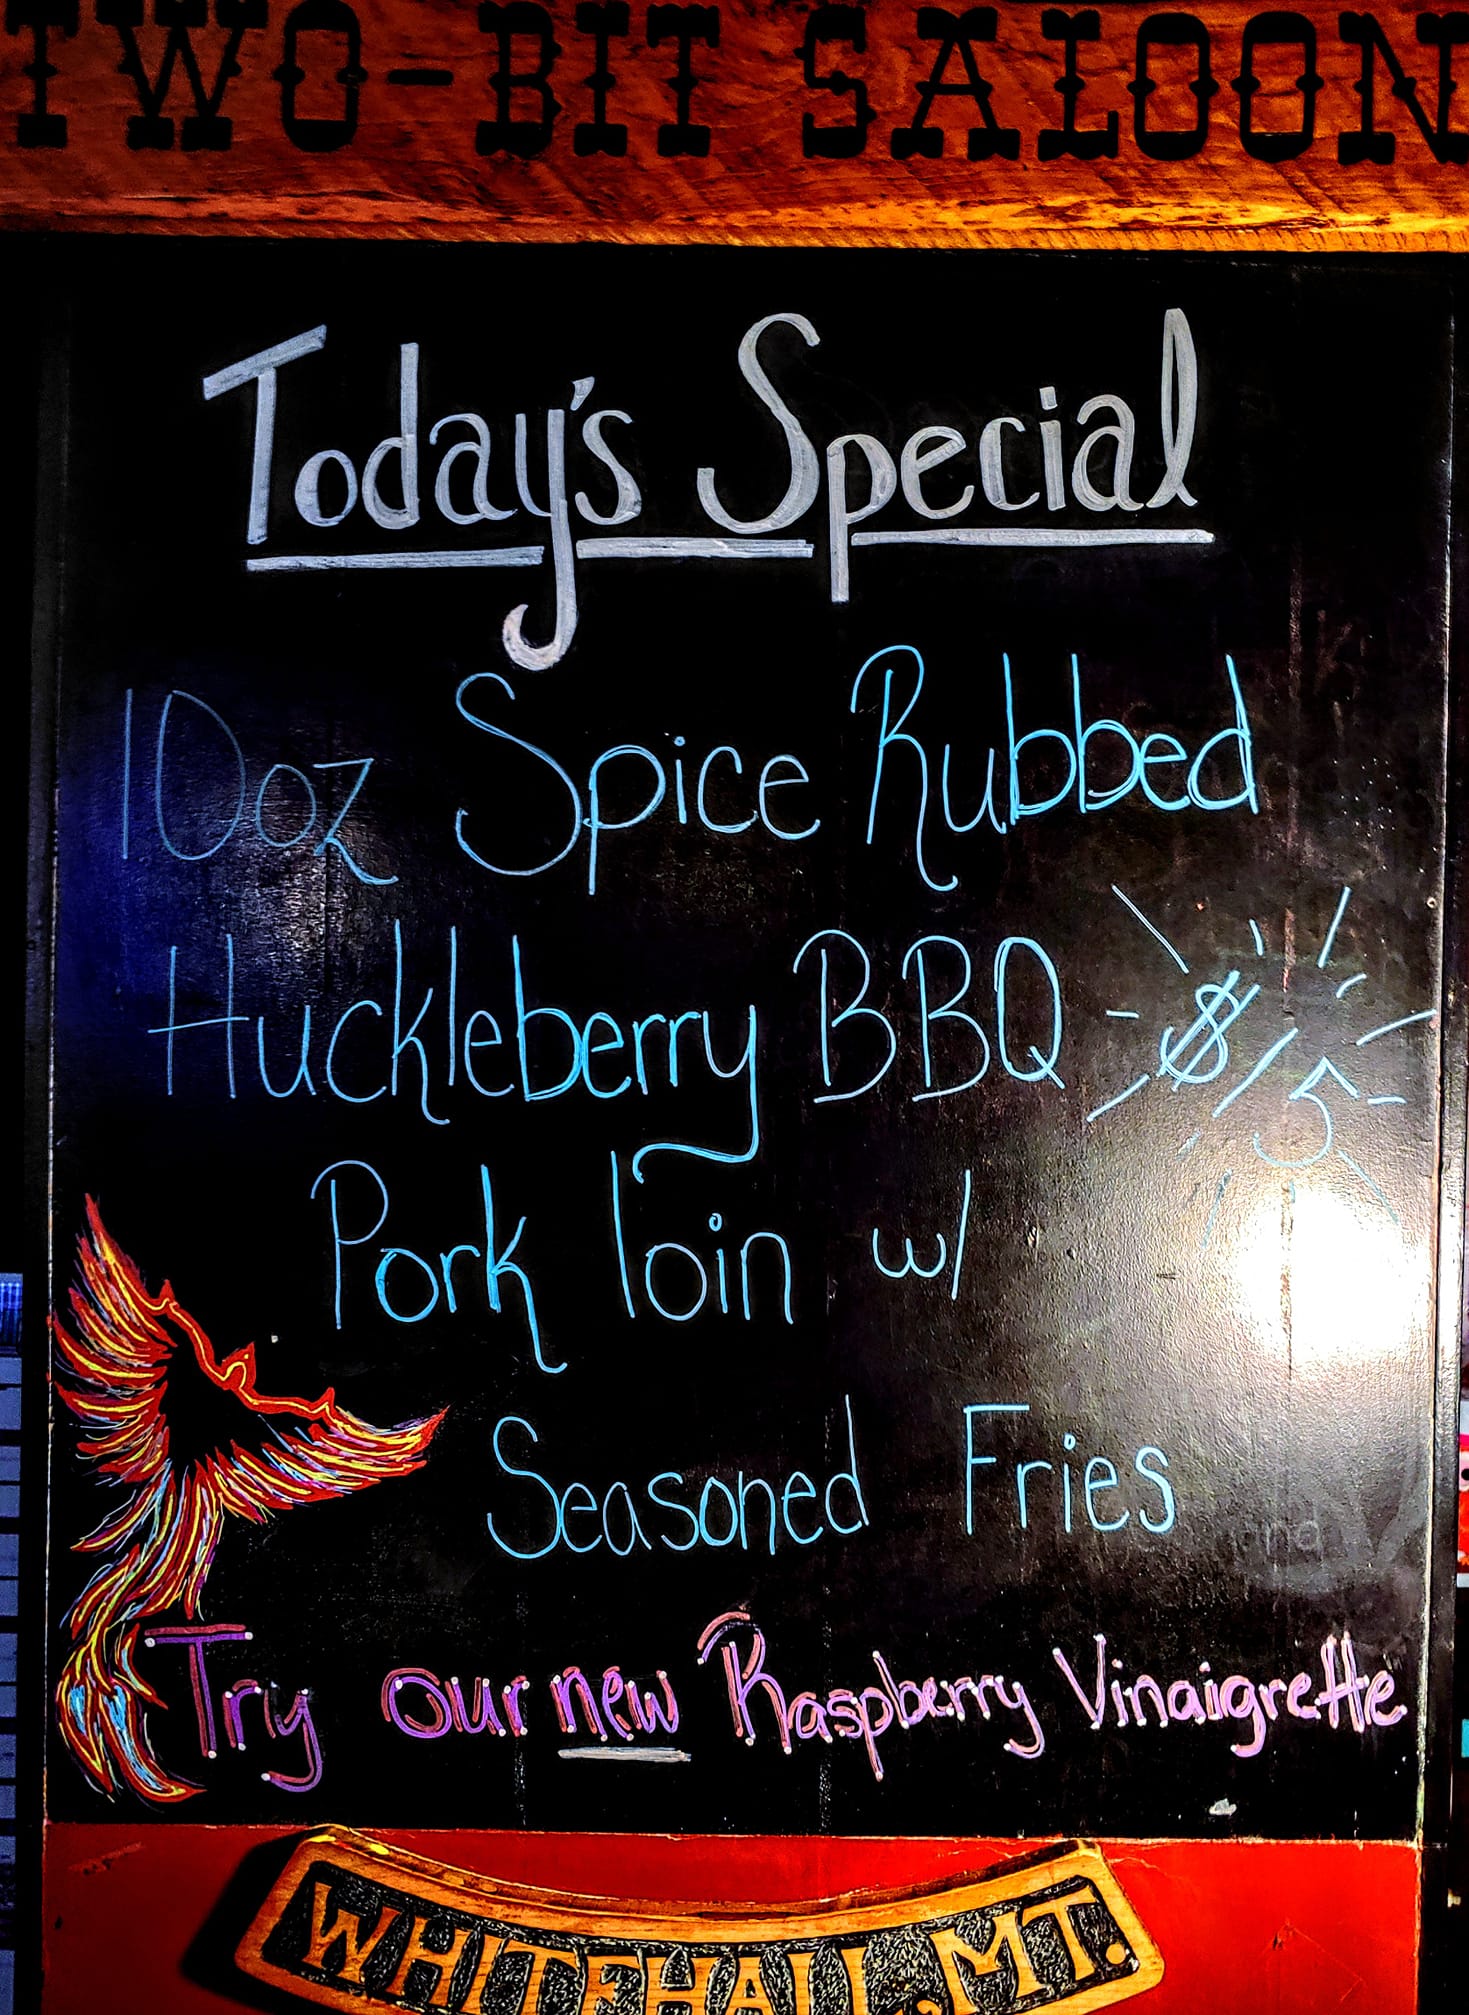 TWO-BIT SALOON
Today's Special
10oz Spice Rubbed
Huckleberry BBQ - $15
Pork loin w/
Seasoned Fries
Try our new Raspberry Vinaigrette
WHITEHALL, MT.